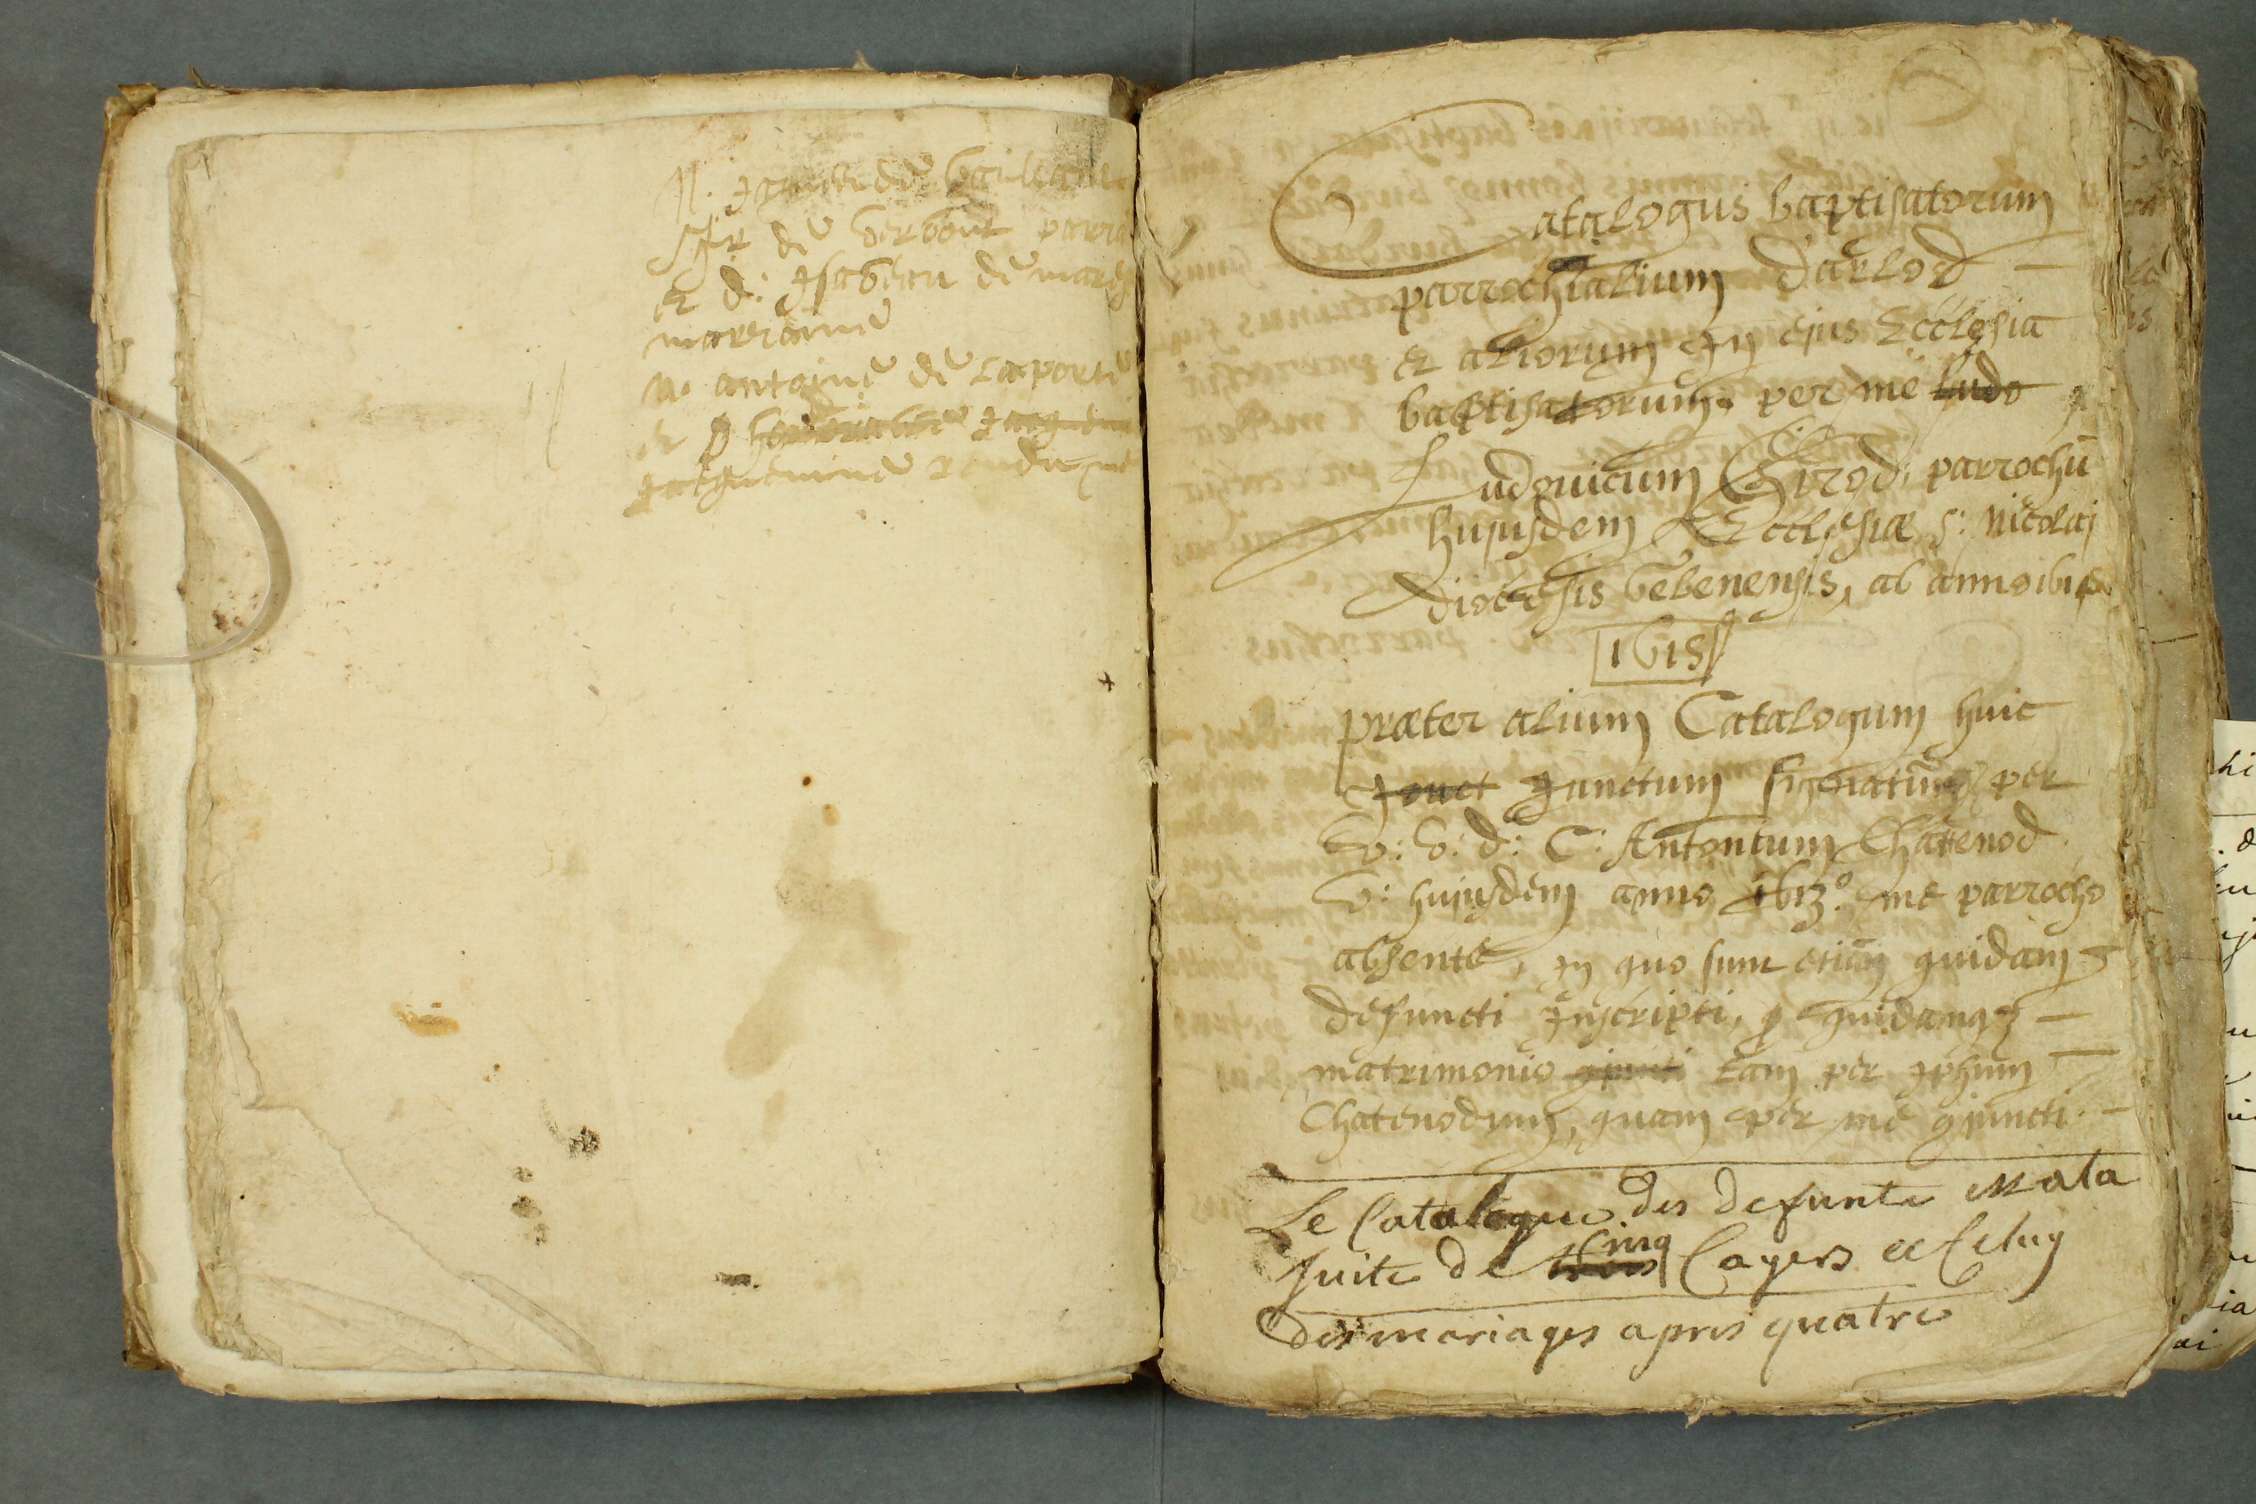 sgr de verbout parra
et d: Isabeau de mareg
marraine
n. antoine de laporte
et
Jacquemine
Catalogus baptisatorum
parrochialium D'arlod
et aliorum in ejus Ecclesia
baptisatorum per me Ludo
Ludouicum Girod, parrochū
hujusdem Ecclesiæ S: Nicolaj
diocesis Gebenensis, ab anno ibide
1615
præter alium Catalogum huic
Junct Junctum signatum per
V: d: C: Antonium Chattenod
V: hujusdem anno 1613º me parrocho
absente, in quo sunt etiam quidam
defuncti Inscripti, quidamq3
matrimonio tam per Ipsum
Chatenodum, quam per me gjuncti.
Le Catalogue des defunts est a la
suite de trois Cinq Cayers et Celuy
des mariages apres quatre